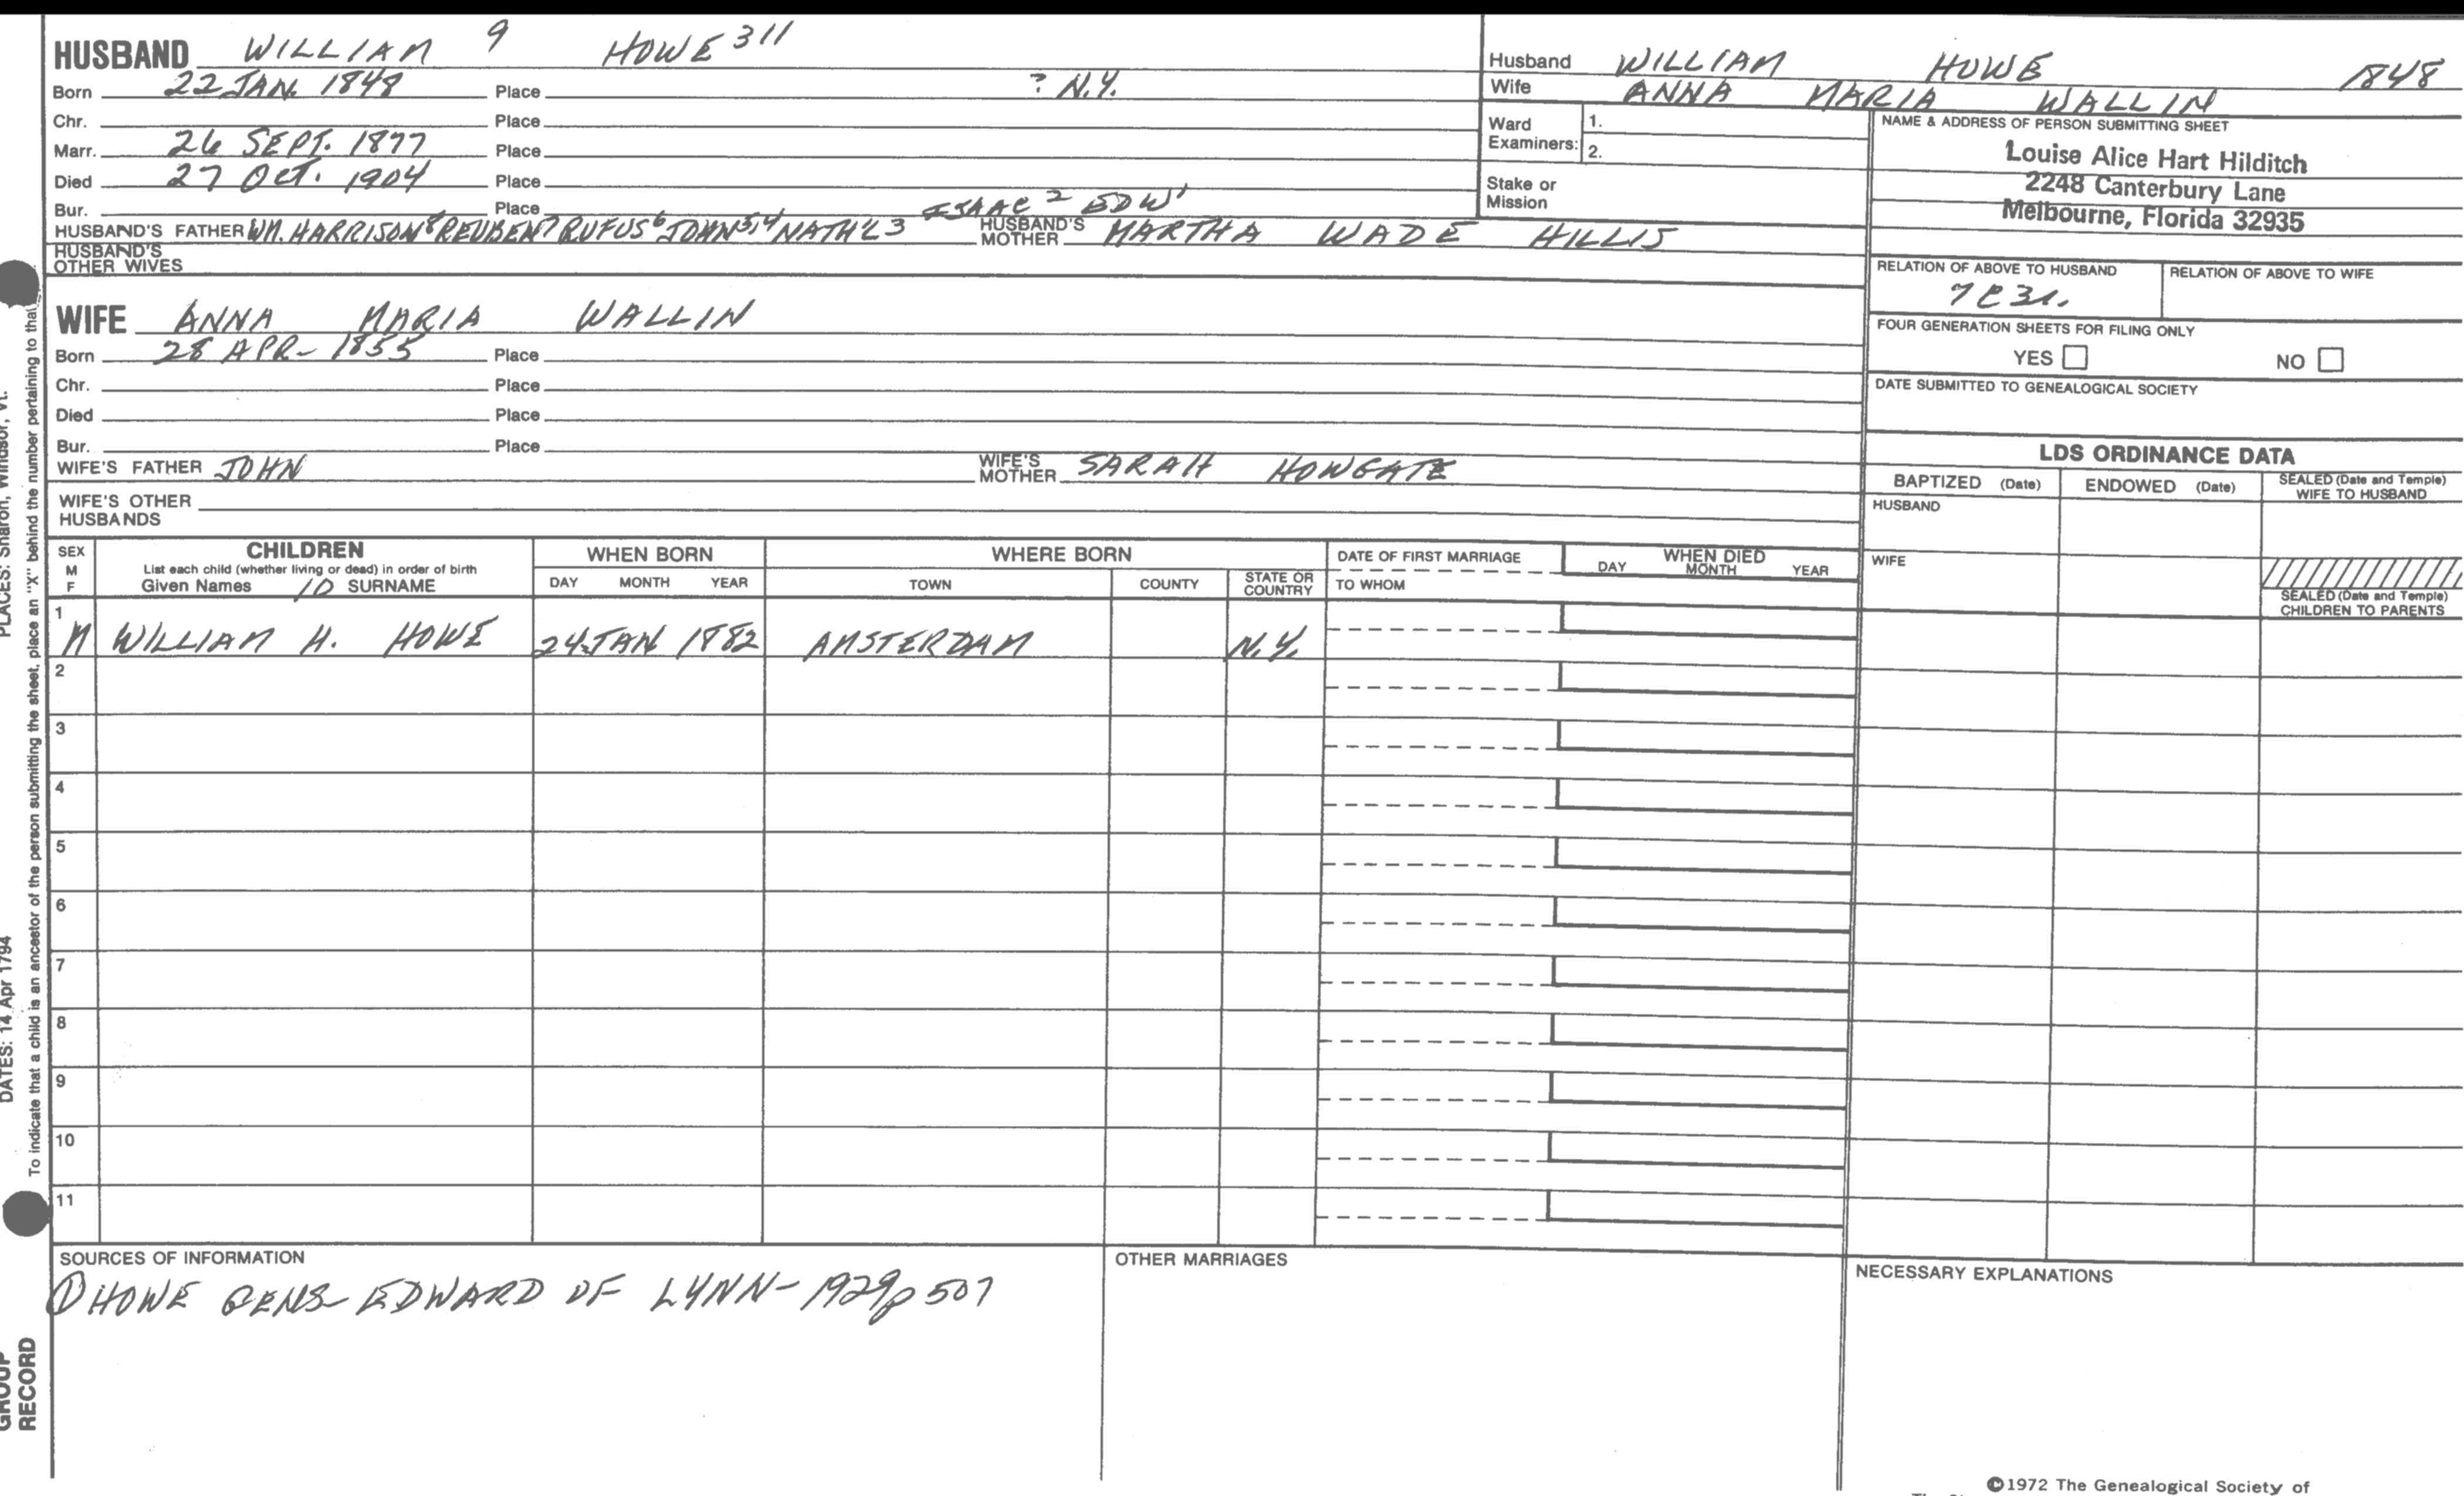 HUSBAND WILLIAM 9 HOWE 311
Born 22 JAN. 1848 Place ? N.Y.
Chr. Place
Marr. 26 SEPT. 1877 Place
Died 27 OCT. 1904 Place
Bur. Place ISAAC 2 EDW 1
HUSBAND'S FATHER WM. HARRISON 8 REUBEN 7 RUFUS 6 JOHN 5,4 NATH'L 3 HUSBAND'S MOTHER MARTHA WADE HILLIS
HUSBAND'S OTHER WIVES
Husband WILLIAM HOWE 1848
Wife ANNA MARIA WALLIN
Ward Examiners: 1.
2.
Stake or Mission
NAME & ADDRESS OF PERSON SUBMITTING SHEET
Louise Alice Hart Hilditch
2248 Canterbury Lane
Melbourne, Florida 32935
RELATION OF ABOVE TO HUSBAND RELATION OF ABOVE TO WIFE
FOUR GENERATION SHEETS FOR FILING ONLY
YES NO
DATE SUBMITTED TO GENEALOGICAL SOCIETY
WIFE ANNA MARIA WALLIN
Born 28 APR- 1855 Place
Chr. Place
Died Place
Bur. Place
WIFE'S FATHER JOHN WIFE'S MOTHER SARAH HOWGATE
WIFE'S OTHER
HUSBANDS
LDS ORDINANCE DATA
BAPTIZED (Date) ENDOWED (Date) SEALED (Date and Temple) WIFE TO HUSBAND
HUSBAND
WIFE
SEALED (Date and Temple)
CHILDREN TO PARENTS
SEX M F CHILDREN WHEN BORN WHERE BORN DATE OF FIRST MARRIAGE WHEN DIED
List each child (whether living or dead) in order of birth
Given Names 10 SURNAME DAY MONTH YEAR TOWN COUNTY STATE OR COUNTRY TO WHOM DAY MONTH YEAR
1
M WILLIAM H. HOWE 24 JAN 1882 AMSTERDAM N.Y.
2
3
4
5
6
7
8
9
10
11
SOURCES OF INFORMATION OTHER MARRIAGES NECESSARY EXPLANATIONS
① HOWE GENS- EDWARD OF LYNN- 1929 p 507
©1972 The Genealogical Society of
PLACES: Sharon, Windsor, Vt.
To indicate that a child is an ancestor of the person submitting the sheet, place an "X" behind the number pertaining to that
DATES: 14 Apr 1794
GROUP
RECORD